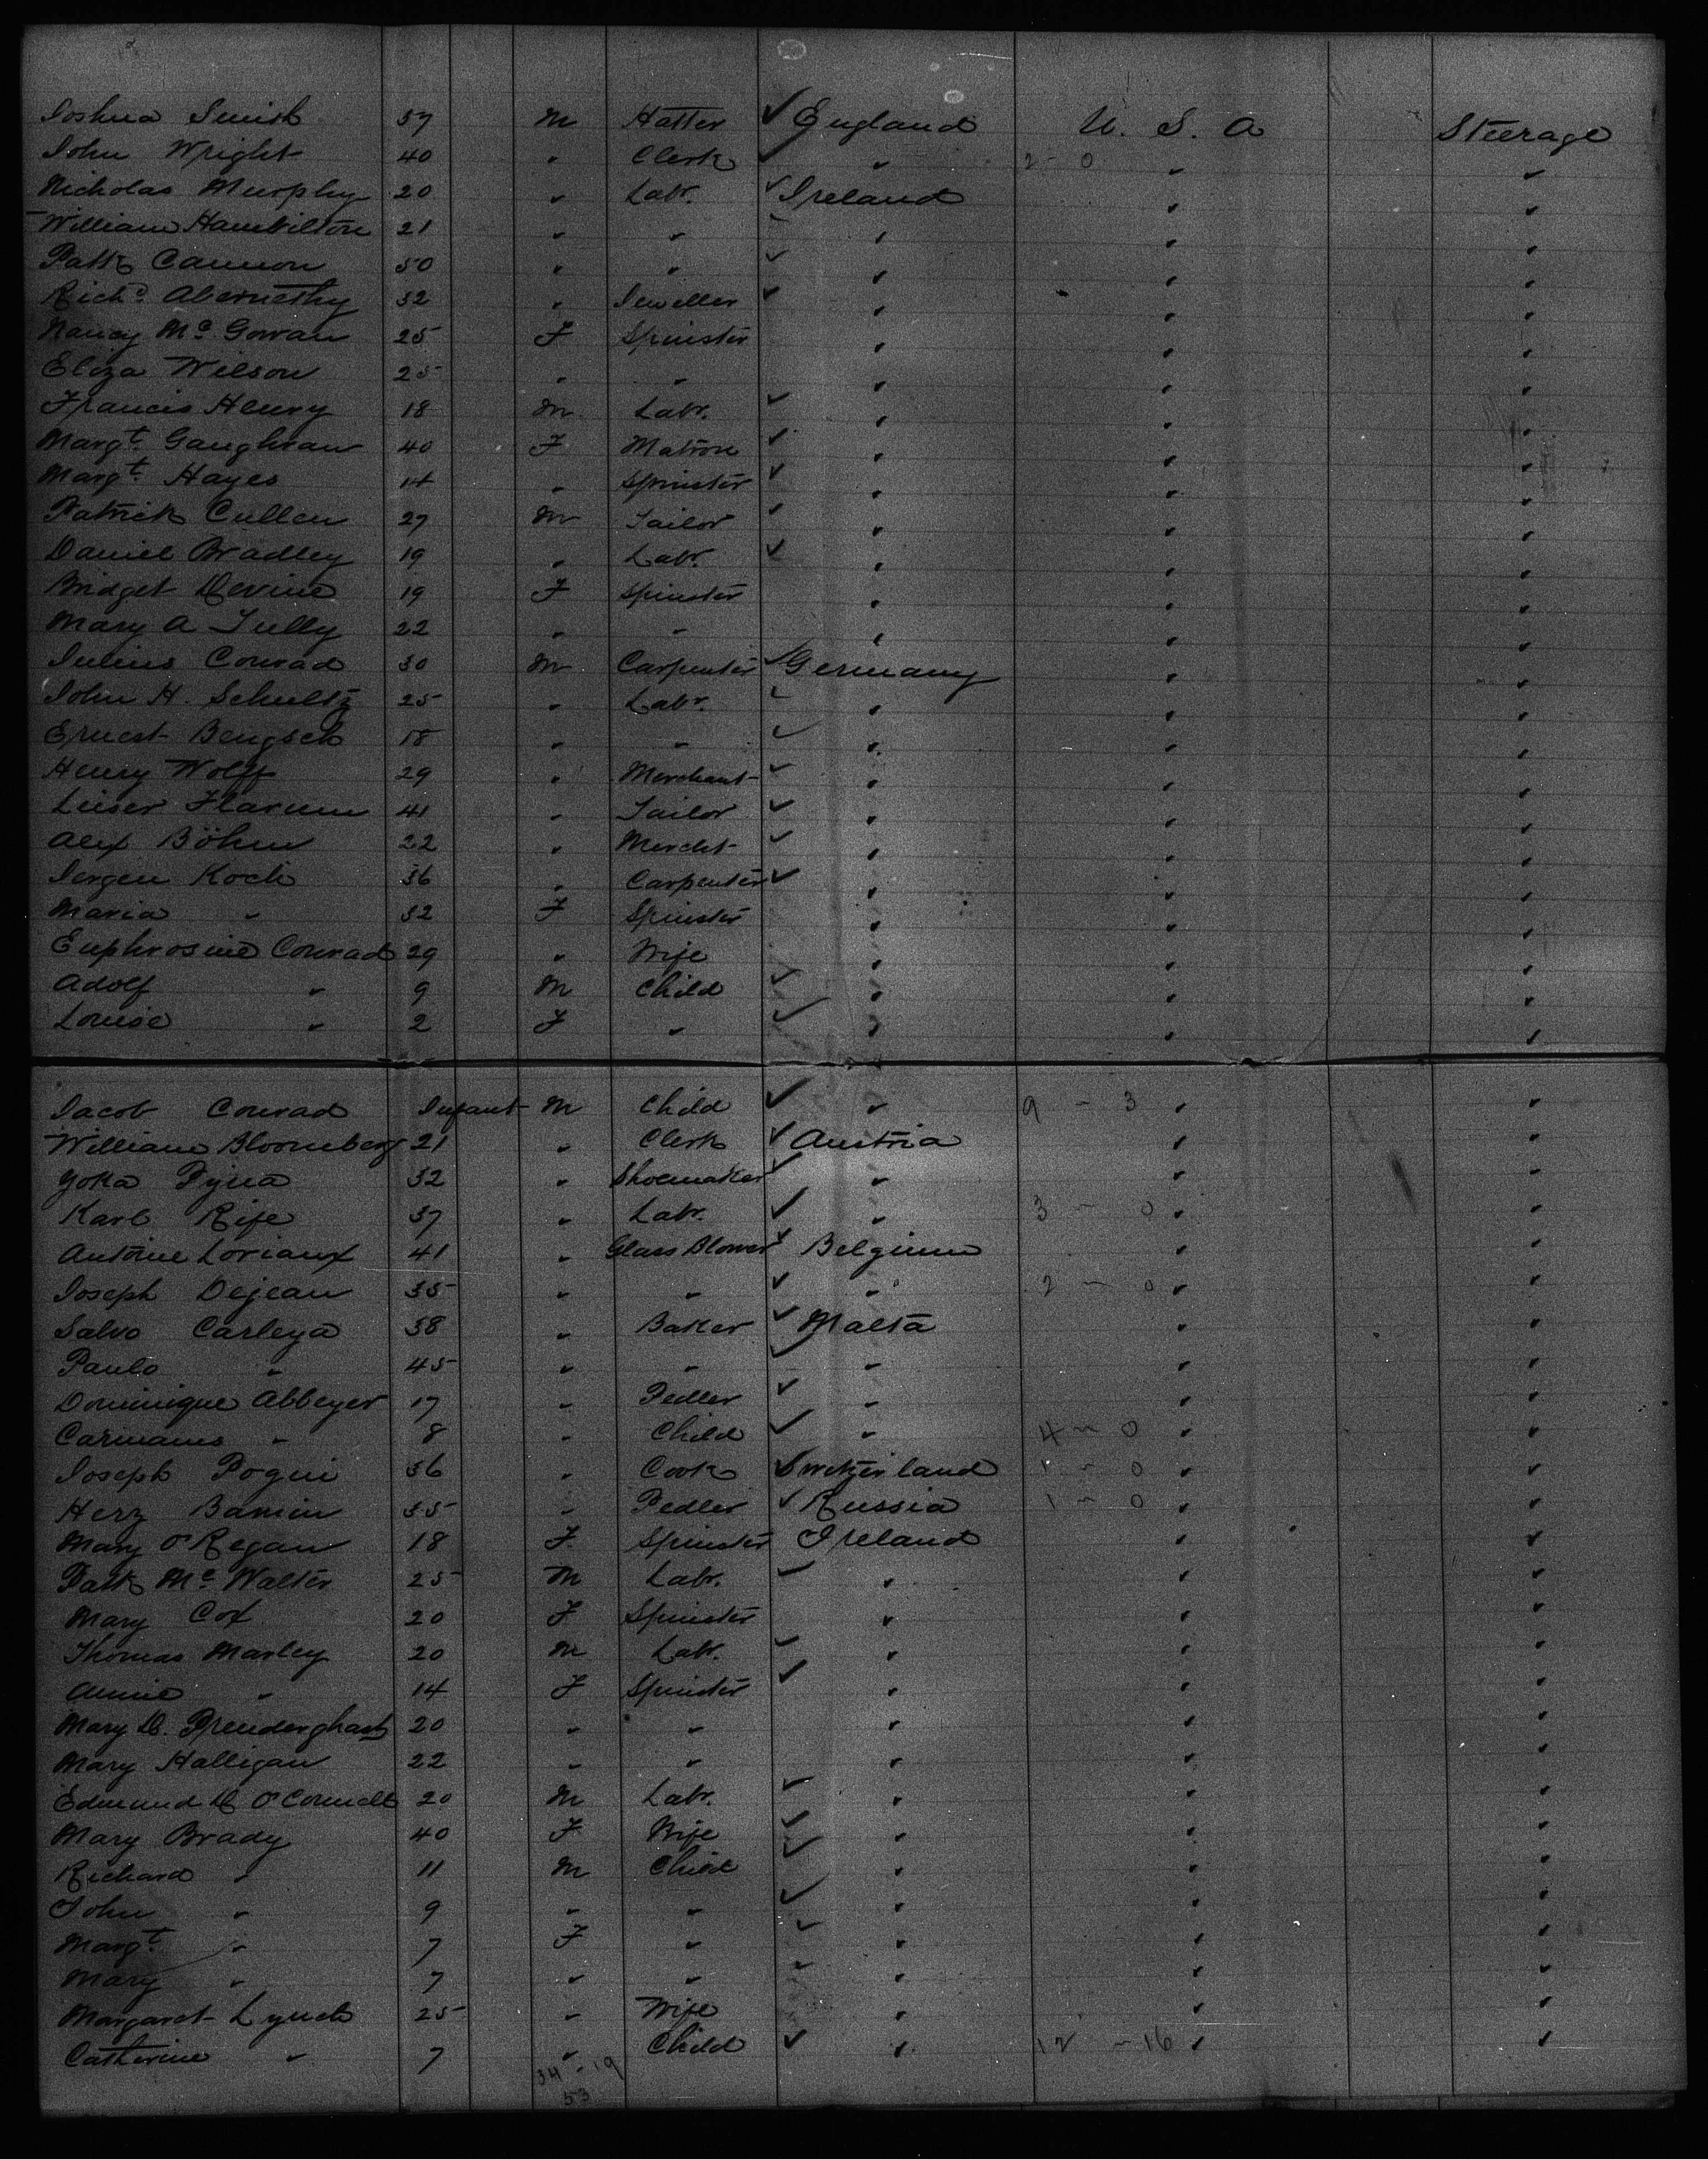 Joshua Smith 37 M Hatter ✓ England U. S. A Steerage
John Wright 40 " Clerk ✓ " 2 - 0 " "
Nicholas Murphy 20 " Labr. ✓ Ireland " "
William Hamilton 21 " " " " "
Patk Cannon 50 " " ✓ " " "
Richd Abernethy 32 " Jeweller ✓ " " "
Nancy Mc Gowan 25 F Spinster " " "
Eliza Wilson 25 " " " " "
Francis Henry 18 M Labr. ✓ " " "
Margt Gaughran 40 F Matron ✓ " " "
Margt. Hayes 14 " Spinster ✓ " " "
Patrick Cullen 27 M Tailor ✓ " " "
Daniel Bradley 19 " Labr. ✓ " " "
Bridget Devine 19 F Spinster " " "
Mary A Tully 22 " " " " "
Julius Conrad 30 M Carpenter ✓ Germany " "
John H. Schultz 25 " Labr. ✓ " " "
Ernest Bengsch 18 " " ✓ " " "
Henry Wolff 29 " Merchant ✓ " " "
Leiser 41 " Tailor ✓ " " "
Alex Böhm 22 " Mercht ✓ " " "
Jergen Koch 36 " Carpenter ✓ " " "
Maria " 32 F Spinster " " "
Euphrosine Conrad 29 " Wife " " "
Adolf " 9 M Child ✓ " " "
Louise " 2 F " ✓ " " "
Jacob Conrad Infant M Child ✓ " 9 - 3 " "
William Bloomberg 21 " Clerk ✓ Austria " "
Yoka Pyna 32 " Shoemaker ✓ " " "
Karl Rife 37 " Labr. ✓ " 3 - 0 " "
Antoine Loriaux 41 " Glass Blower ✓ Belgium " "
Joseph Dejean 35 " " ✓ " 2 - 0 " "
Salvo Carleya 38 " Baker ✓ Malta " "
Paulo " 45 " " ✓ " " "
Dominique Abbeyer 17 " Pedler ✓ " " "
Carmanus " 8 " Child ✓ " 4 - 0 " "
Joseph Pogui 36 " Cook ✓ Switzerland 1 - 0 " "
Herz Bamin 35 " Pedler ✓ Russia 1 - 0 " "
Mary O'Regan 18 F Spinster Ireland " "
Patk Mc Walter 25 M Labr. ✓ " " "
Mary Cox 20 F Spinster " " "
Thomas Marley 20 M Labr. ✓ " " "
Annie " 14 F Spinster ✓ " " "
Mary D. Prenderghast 20 " " " " "
Mary Halligan 22 " " " " "
Edmund D O'Connell 20 M Labr. ✓ " " "
Mary Brady 40 F Wife ✓ " " "
Richard " 11 M Child ✓ " " "
John " 9 " " ✓ " " "
Margt " 7 F " ✓ " " "
Mary " 7 " " " " "
Margaret Lynch 25 " Wife " " "
Catherine " 7 " Child ✓ " 12 - 16 " "
34 - 19
53